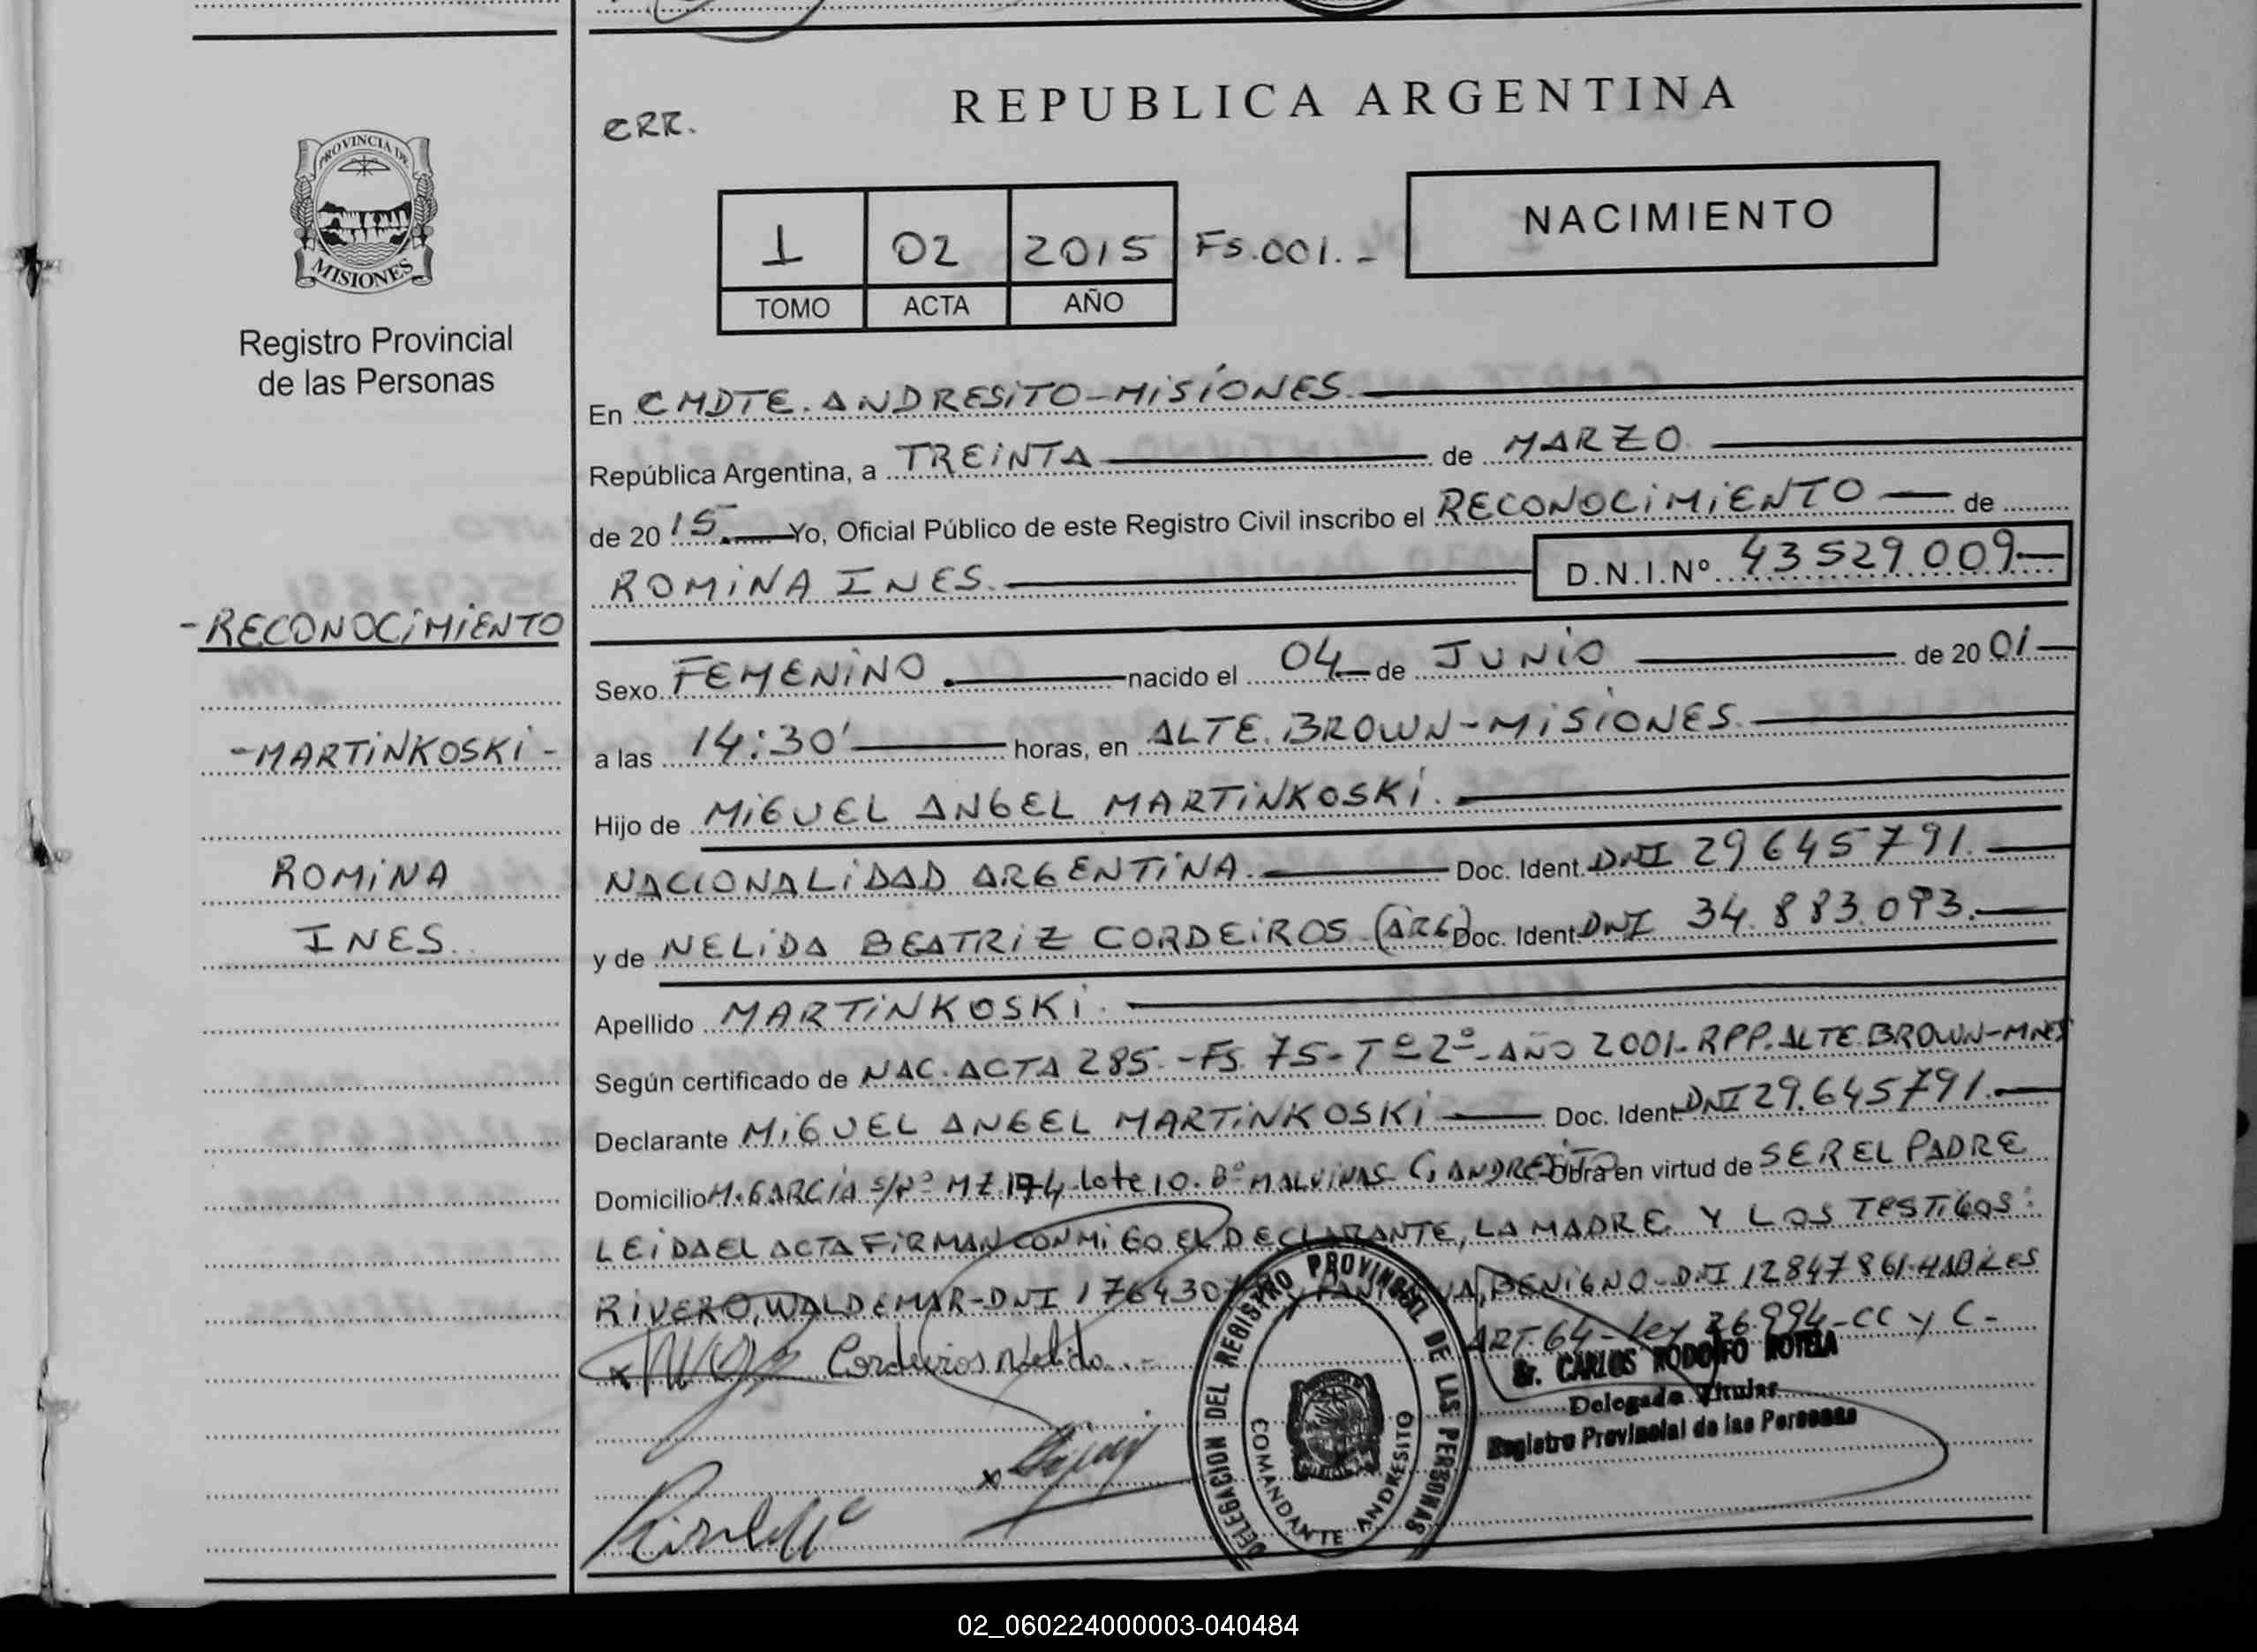 ERR.
REPUBLICA ARGENTINA
PROVINCIA DE
MISIONES
Registro Provincial
de las Personas
1 02 2015 FS.001.-
TOMO ACTA AÑO
NACIMIENTO
En CMDTE. ANDRESITO-MISIONES.
República Argentina, a TREINTA de MARZO
de 2015. Yo, Oficial Público de este Registro Civil inscribo el RECONOCIMIENTO de
ROMINA INES. D.N.I.Nº 43529009
-RECONOCIMIENTO
Sexo FEMENINO. nacido el 04 de JUNIO de 2001
-MARTINKOSKI-
a las 14:30' horas, en ALTE. BROWN-MISIONES.
Hijo de MIGUEL ANGEL MARTINKOSKI.
ROMINA
NACIONALIDAD ARGENTINA. Doc. Ident. DNI 29645791.
INES.
y de NELIDA BEATRIZ CORDEIROS (ARG) Doc. Ident DNI 34.883.093.
Apellido MARTINKOSKI.
Según certificado de NAC. ACTA 285.-FS. 75-Tº2º-AÑO 2001-RPP.ALTE.BROWN-MNES
Declarante MIGUEL ANGEL MARTINKOSKI Doc. Ident DNI 29.645791.
Domicilio M. GARCIA s/Nº MZ 174 Lote 10. Bº MALVINAS C. ANDRESITO Obra en virtud de SER EL PADRE
LEIDA EL ACTA FIRMAN CONMIGO EL DECLARANTE, LA MADRE Y LOS TESTIGOS:
RIVERO, WALDEMAR-DNI BENIGNO-DNI 12847861-HABILES
ART. 64-Ley 26.994-CC y C-
Cordeiros Nelida
Sr. CARLOS RODOLFO ROTELA
Delegado Titular
Registro Provincial de las Personas
DELEGACION DEL REGISTRO PROVINCIAL DE LAS PERSONAS
COMANDANTE ANDRESITO
02_060224000003-040484